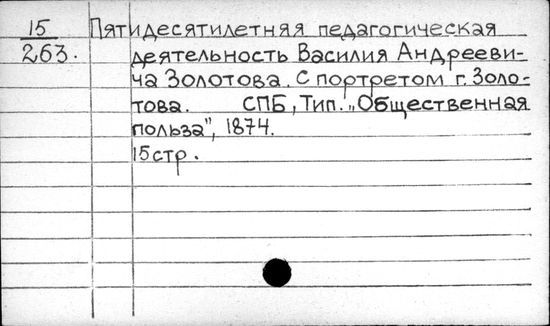 15 Пятидесятилетняя педагогическая
263. деятельность Василия Андрееви-
ча Золотова. С портретом г. Золо-
това. СПБ, Тип. „Общественная
польза", 1874.
15 стр.